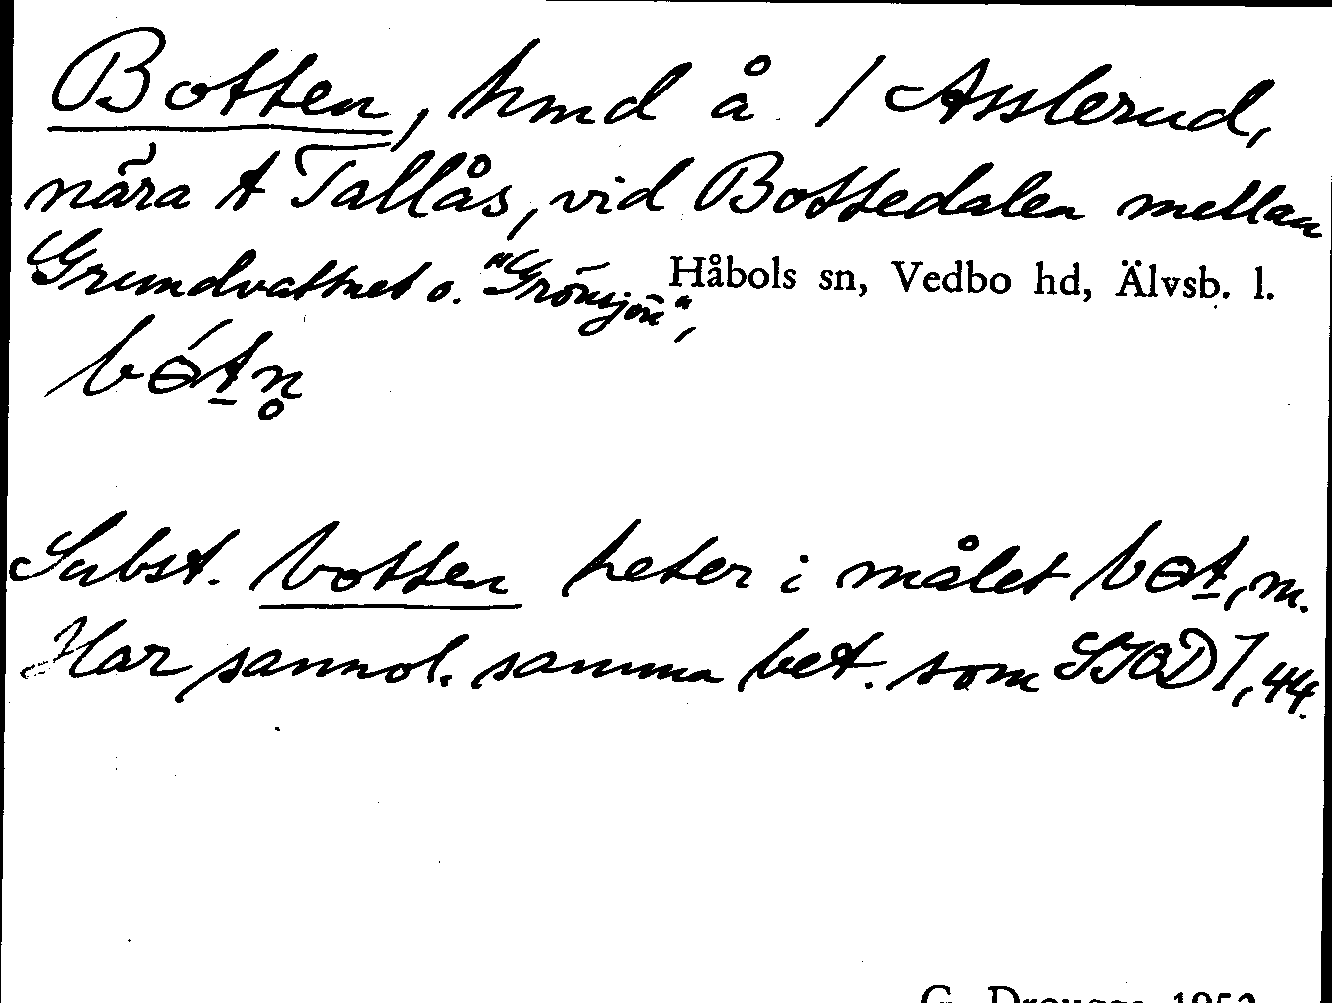 Botten, hmd å / Asslerud,
nära t Tallås, vid Bottedalen mellan
Grundvattnet o. "Grönsjön",
Håbols sn, Vedbo hd, Älvsb. l.
bɵ́t̠n̥
Subst. botten heter i målet bɵt̠, m.
Har sannol. samma bet. som SIOD I, 44.
G. Drougge 1952